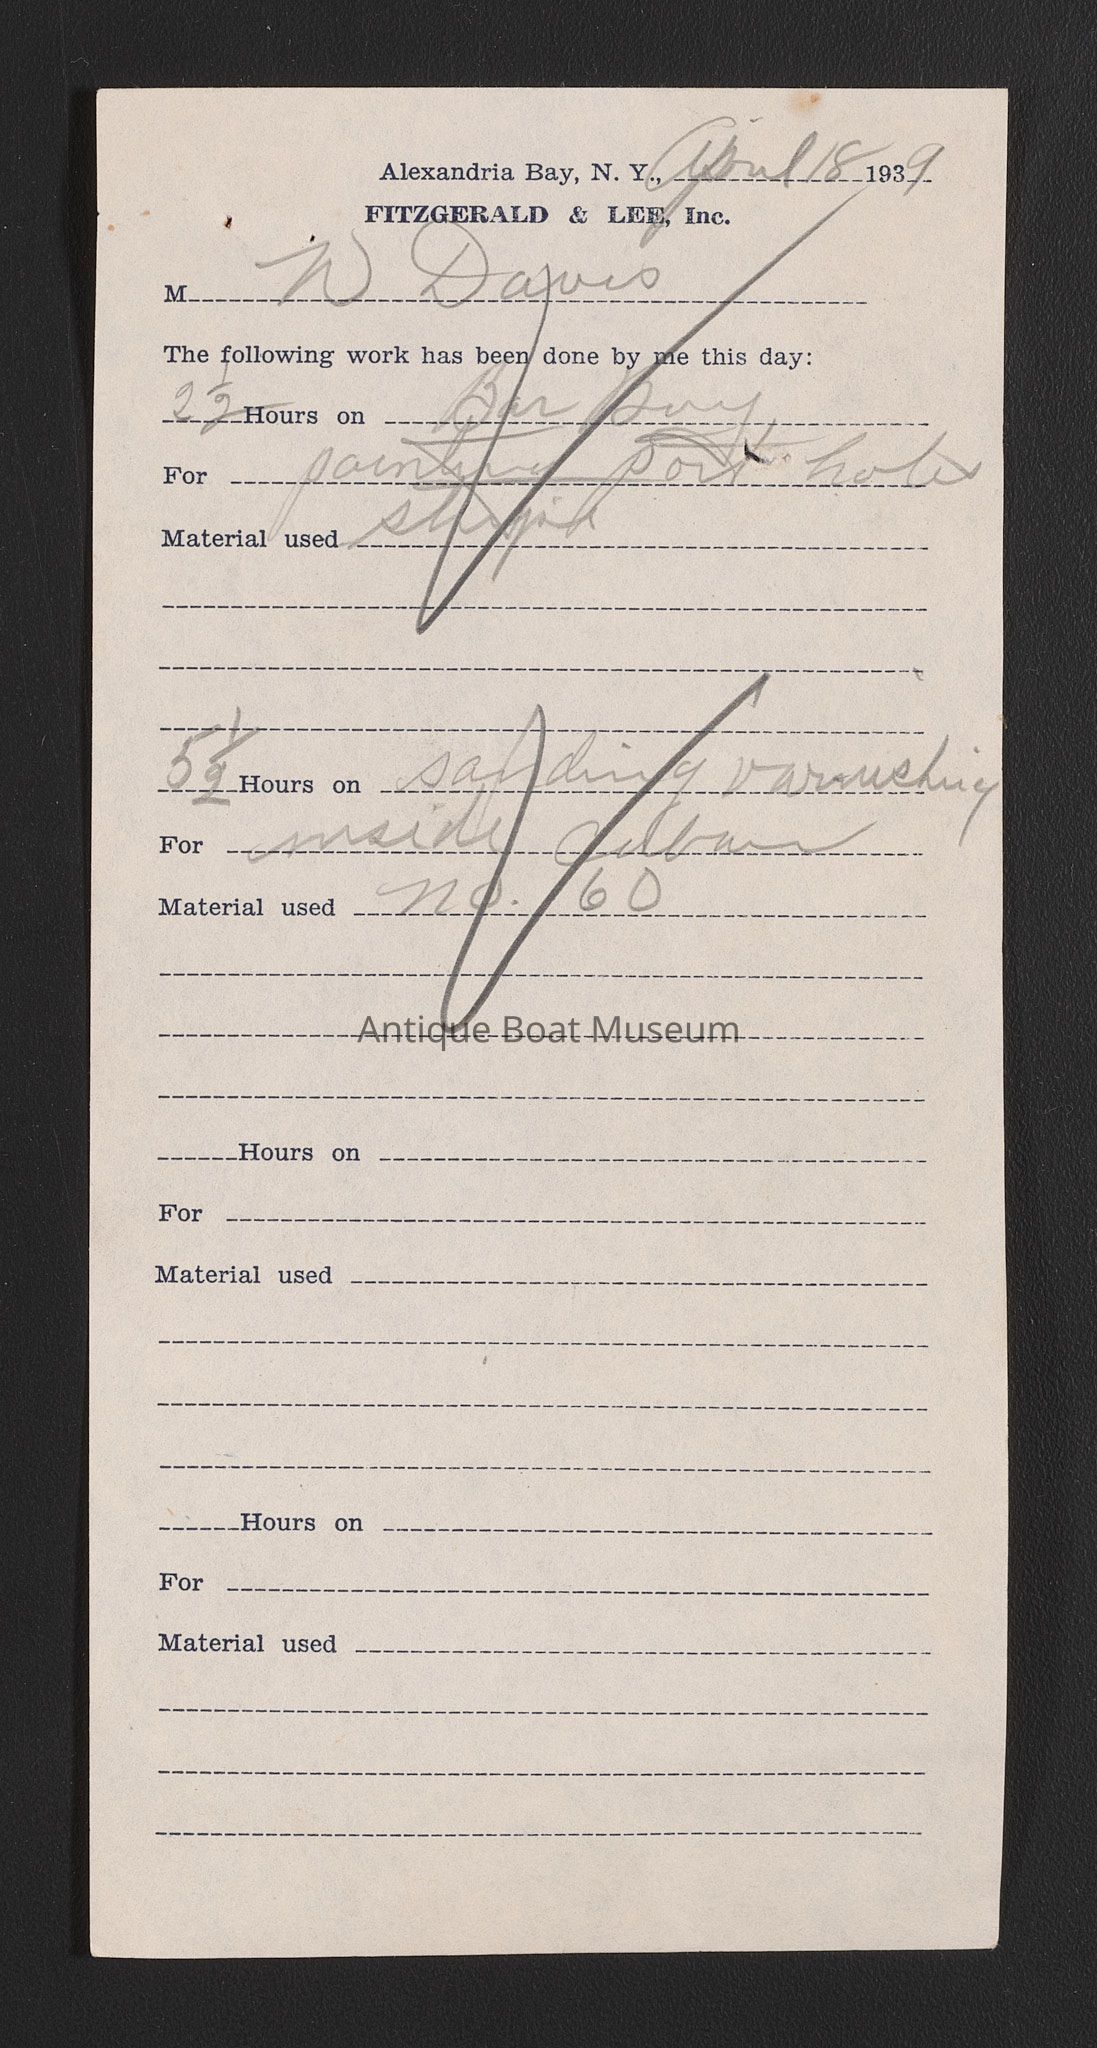 Alexandria Bay, N. Y., April 18 1939
FITZGERALD & LEE, Inc.
M W Davis
The following work has been done by me this day:
2 1/2 Hours on Bar Boy
For painting port holes
Material used
5 1/2 Hours on sanding varnushing
For inside
Material used no. 60
Antique Boat Museum
Hours on
For
Material used
Hours on
For
Material used